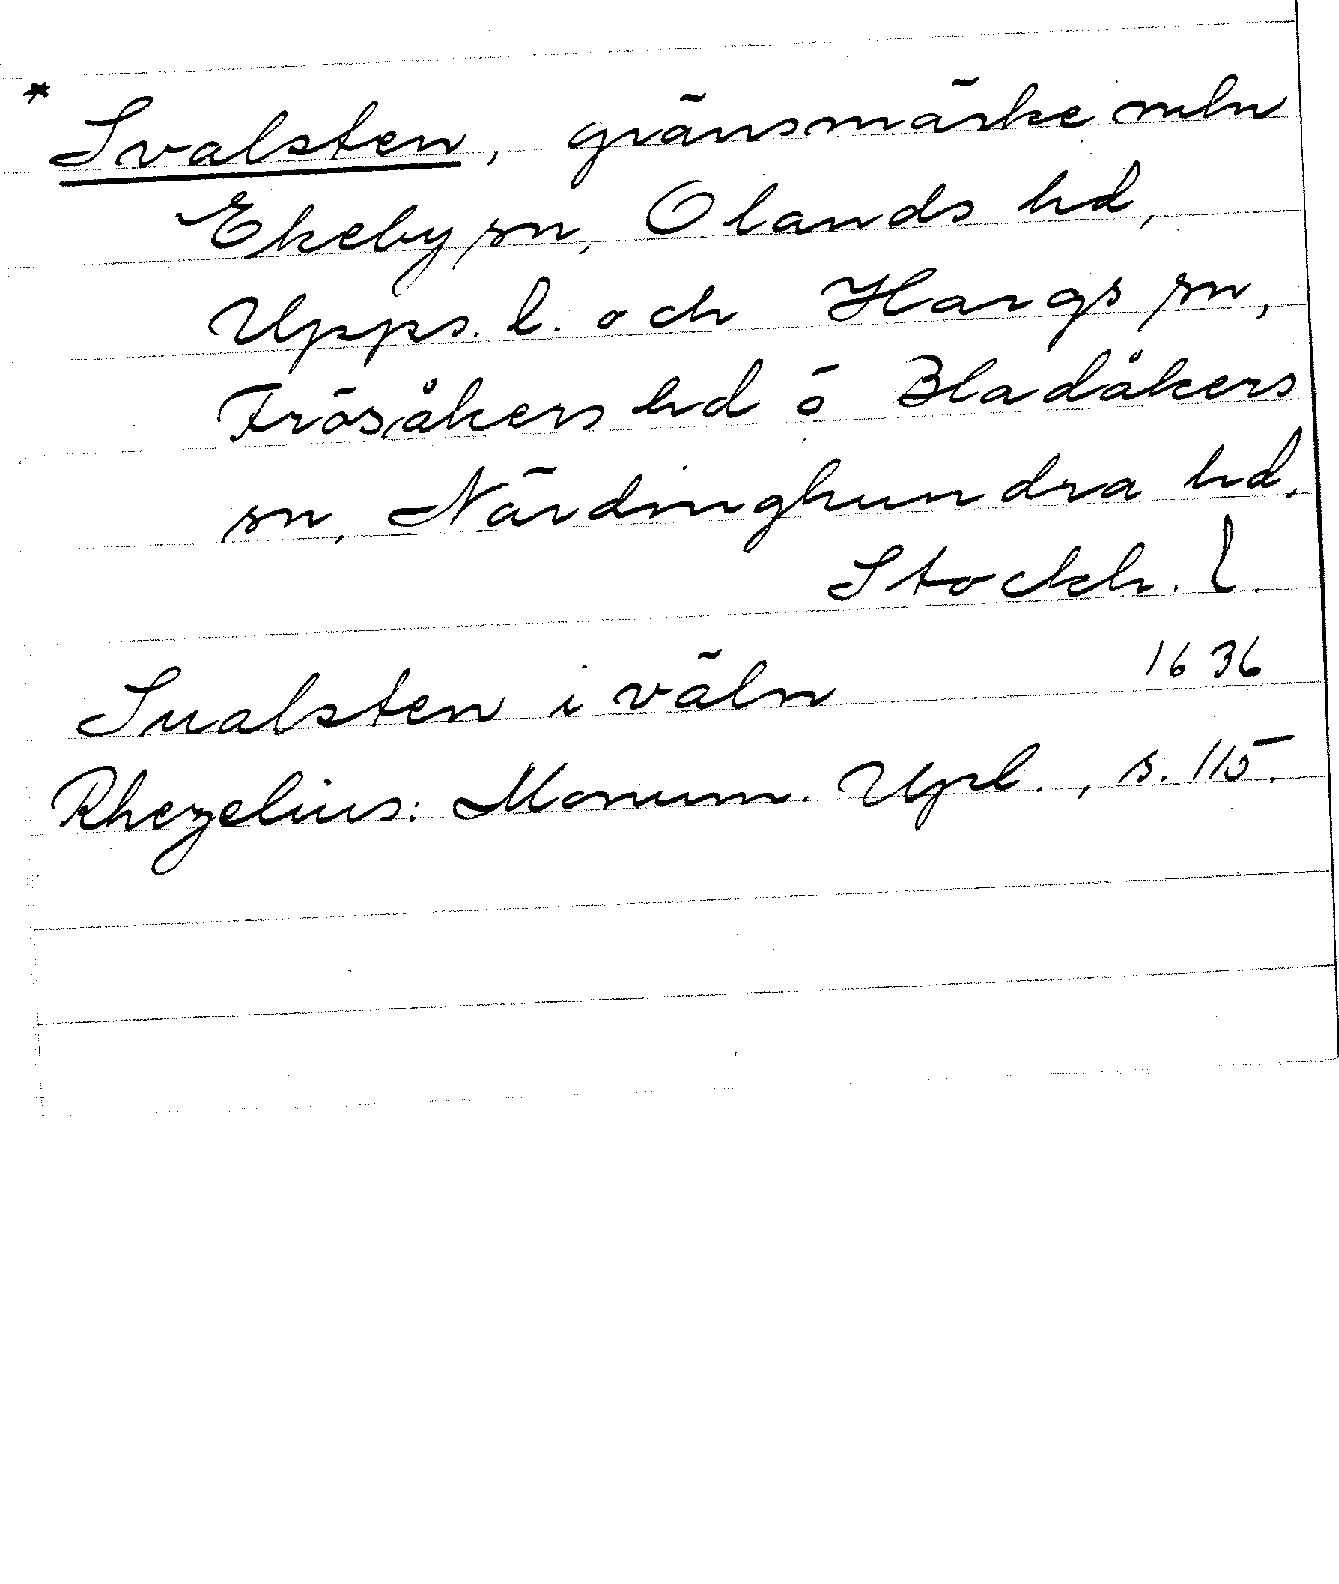 * Svalsten, gränsmärke mln
Ekeby sn, Olands hd,
Upps. l. och Hargs sn,
Frösåkers hd ō Bladåkers
sn, Närdinghundra hd.
Stockh. l.
Sualsten i väln 1636
Rhezelius: Monum. Upl., s. 115.